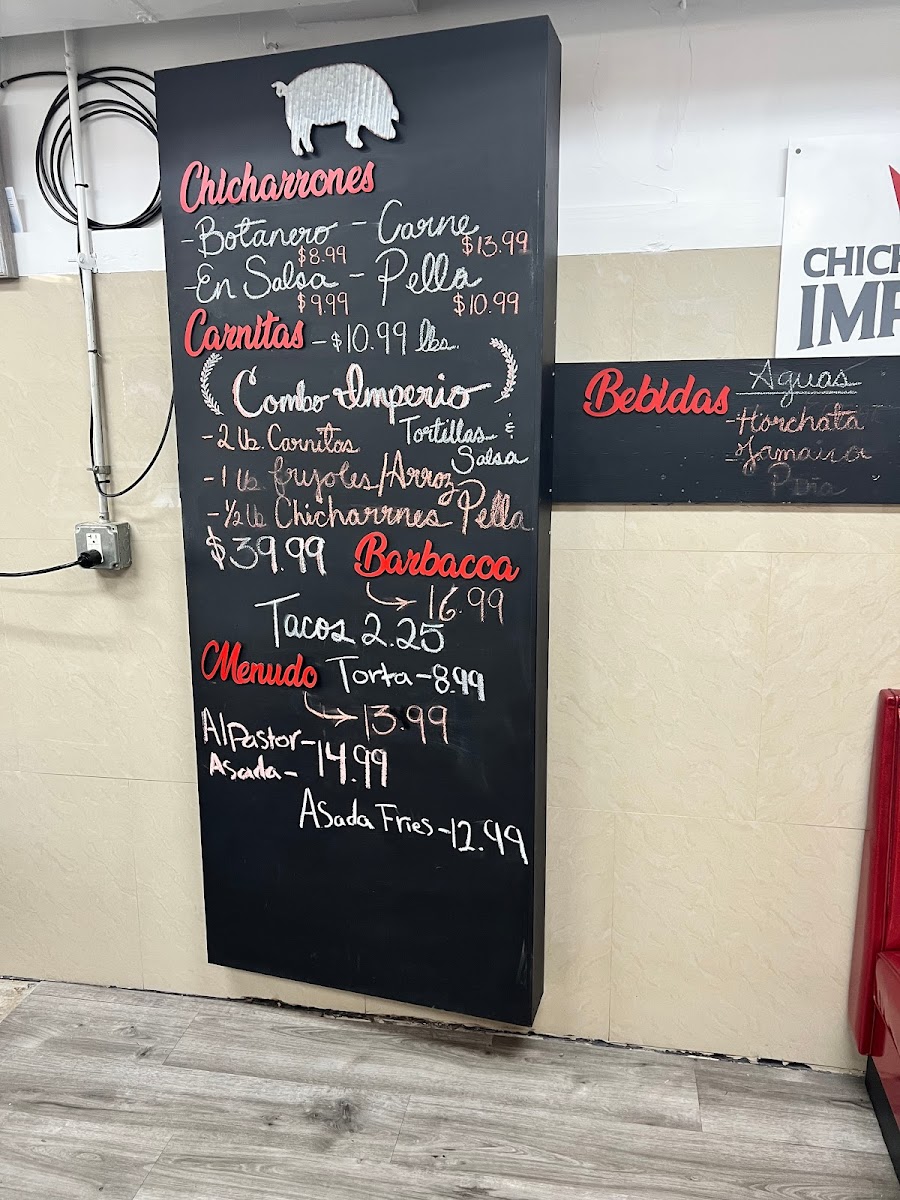 Chicharrones
- Botanero - Carne
$8.99 $13.99
- En Salsa - Pella
$9.99 $10.99
Carnitas - $10.99 lbs.
Combo Imperio
- 2 lb. Carnitas Tortillas &
Salsa
- 1 lb. frijoles/Arroz
- ½ lb Chicharrnes Pella
$39.99 Barbacoa
16.99
Tacos 2.25
Menudo Torta - 8.99
13.99
Al Pastor -
Asada - 14.99
Asada Fries - 12.99
CHIC
IMP
Bebidas Aguas
- Horchata
- Jamaica
Piña